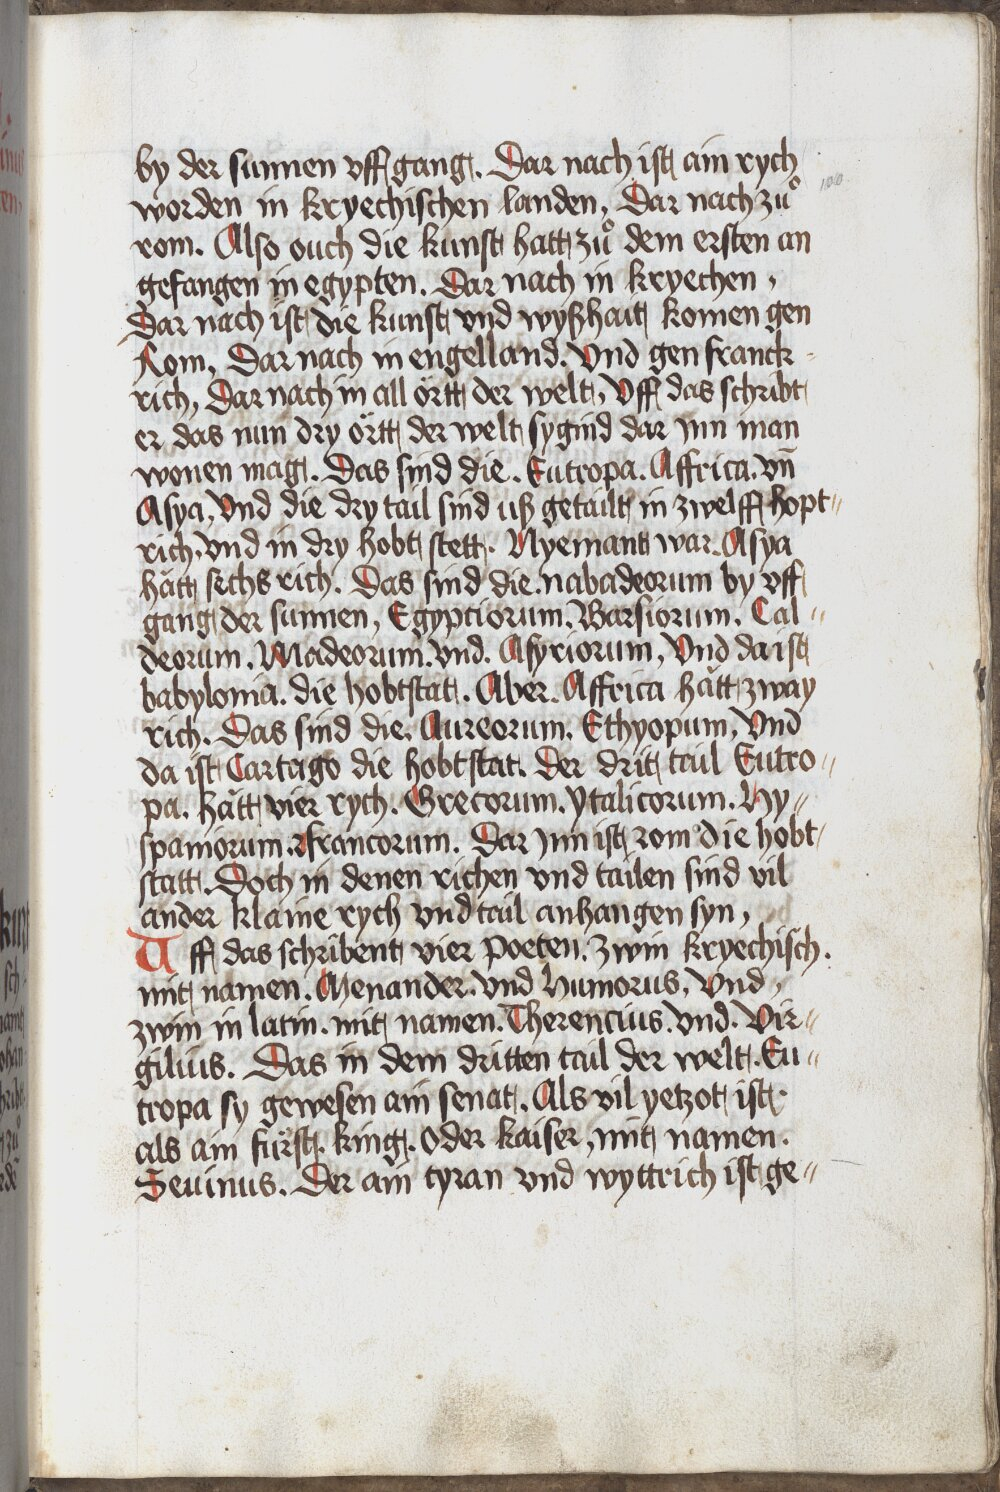 by der sunnen vff gang. Dar nach ist ain rych
100
worden in kryechischen landen, Dar nach zů
rom. Also ouch die kunst hatt zů dem ersten an
gefangen in egypten. Dar nach in kryechen,
Dar nach ist die kunst vnd wyßhait komen gen
Rom, Dar nach in engelland. Vnd gen franck-
rich, Dar nach in all örtt der welt, Vff das schribt
er das nun dry örtt der welt sygind dar jnn man
wonen mag. Das sind die. Eutropa. Affrica. vn̄
Asya, Vnd die dry tail sind uß getailt in zwelff hopt„
rich. vnd in dry hobt stett. Nyemant war. Asya
hätt sechs rich. Das sind die. nabadeorum by vff
gang der sunnen, Egyptiorum. Barsiorum. Cal„
deorum. Madeorum. vnd. Asyriorum, Vnd da ist
babylonia. die hobtstat. Aber. Affrica hätt zway
rich. Das sind die. Aureorum. Ethyopum, Vnd
da ist Cartago die hobtstat. Der drit tail Eutro„
pa. hätt vier rych. Grecorum. ytalicorum. Hy„
spaniorum. Francorum. Dar jnn ist rom die hobt
statt. Doch in denen richen vnd tailen sind vil
ander klaine rych vnd tail anhangen syn,
Uff das schribent vier poeten. zwin kryechisch.
mit namen. Menander. vnd Humorus, Vnd,
zwin in latin. mit namen. Therencius. vnd. Vir„
gilius. Das in dem dritten tail der welt. Eu„
tropa sy gewesen ain senat. Als vil yetzot ist
als ain fürst. king. Oder kaiser, mit namen.
Seuinus. Der ain tyran vnd wyttrich ist ge„